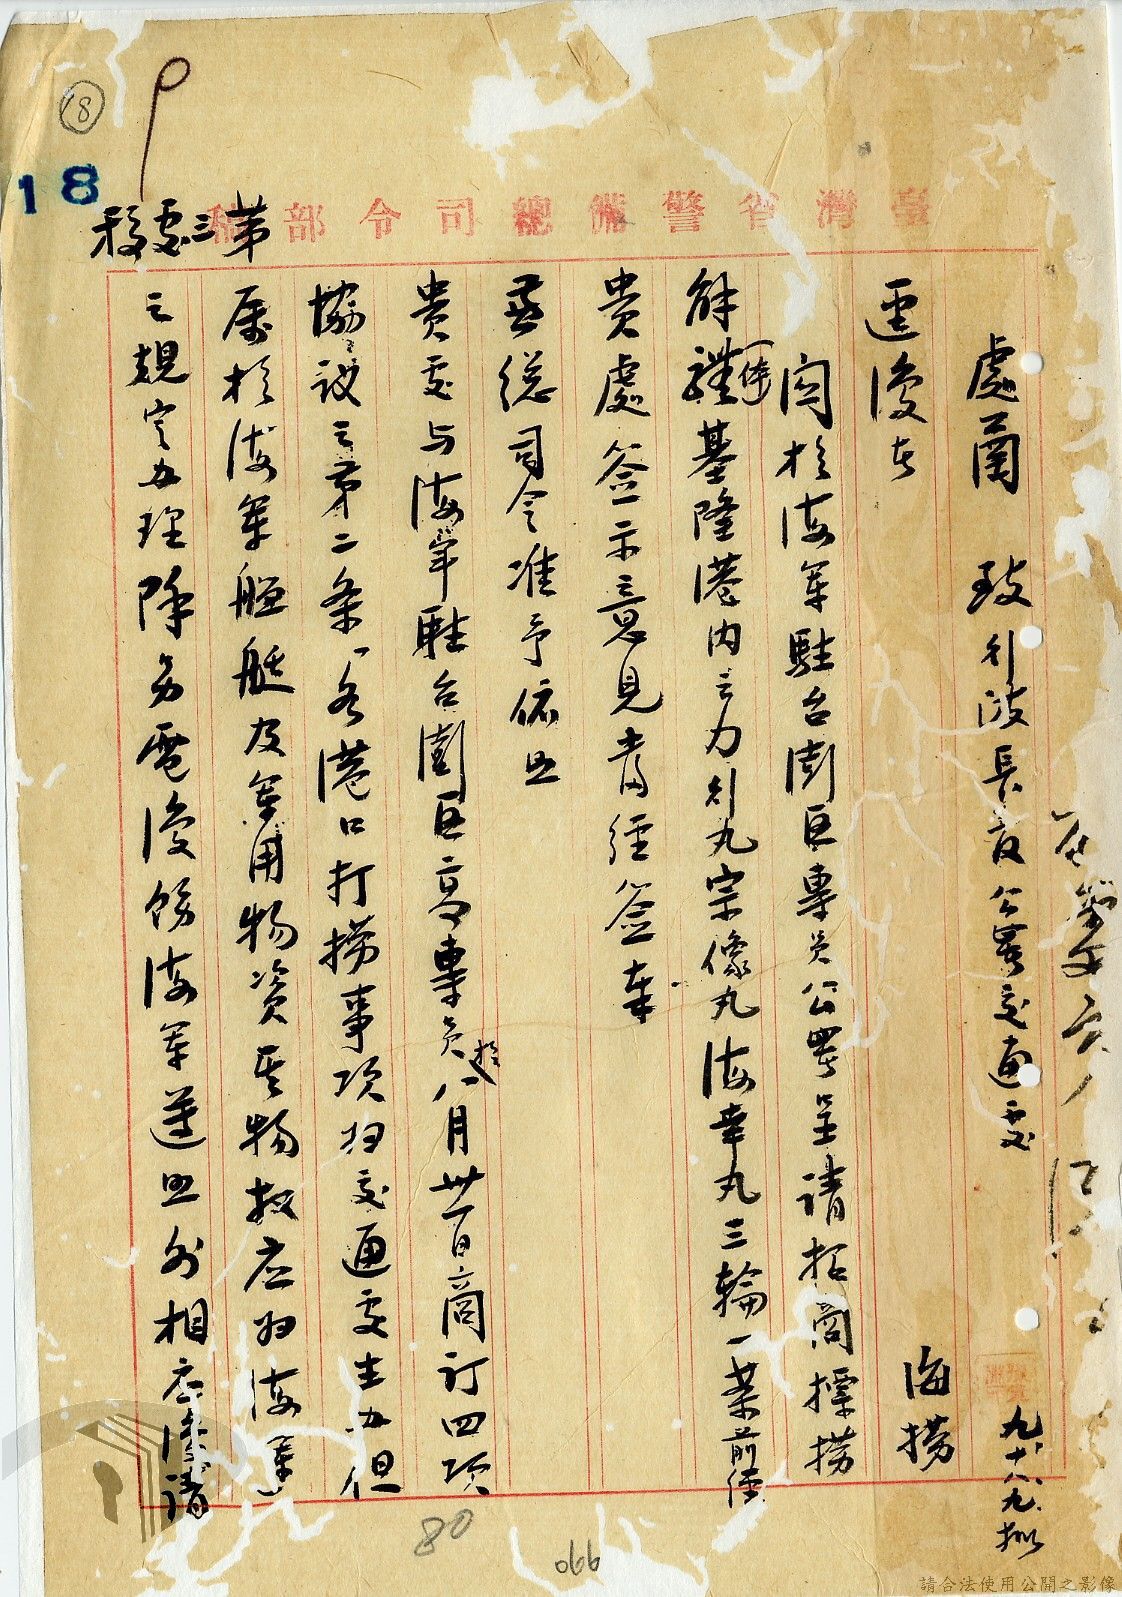 臺灣省警備總司令部稿
第三處移
處蘭 致行政長官公署交通處 九、十八、九擬
海撈
逕復者
關於海軍駐台澎區專員公署呈請招商撈
解體基隆港内之力行丸宗像丸海幸丸三輪一案前經
貴處簽示意見書經簽奉
兼總司令准予依照
貴處與海軍駐台澎區高專員於八月卅一日商訂四項
協議之第二条「各港口打撈事項归交通處主办但
屬於海軍艦艇及軍用物資其物权应归海軍」
之規定办理除分電復飭海軍遵照外相应
請
18
18
80
066
請合法使用公開之影像